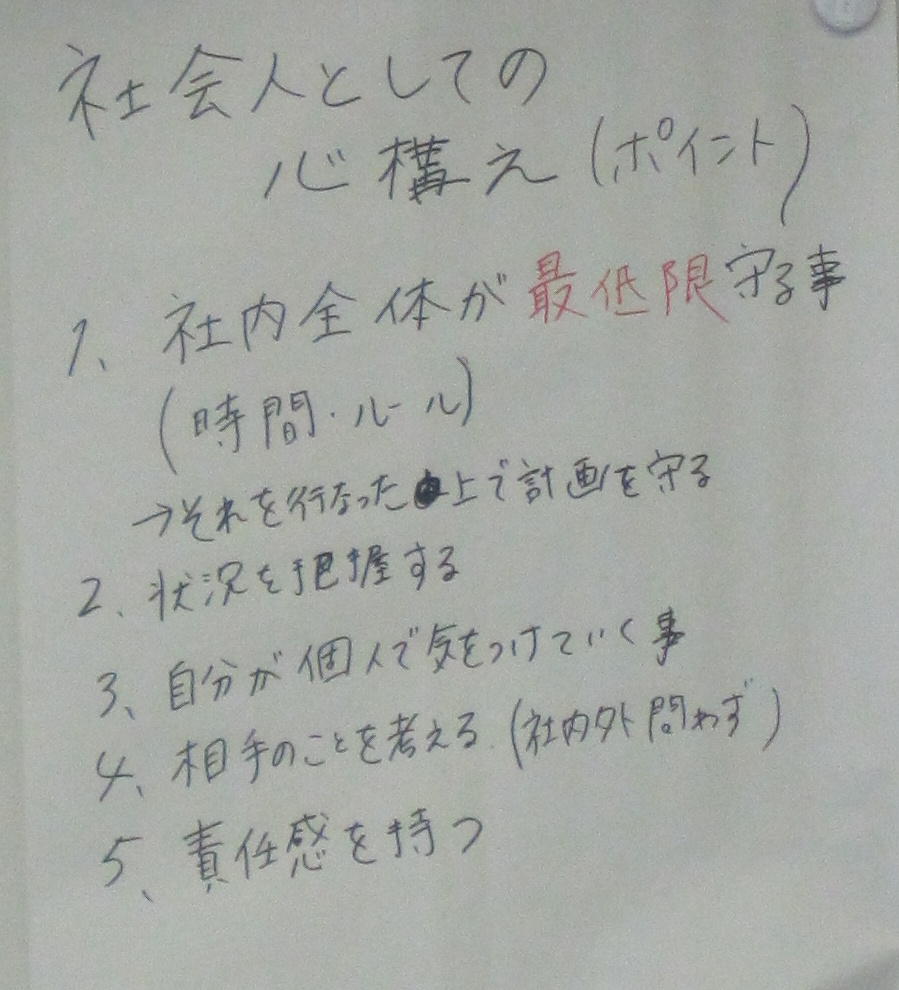 社会人としての
心構え(ポイント)
1、社内全体が最低限守る事
(時間・ルール)
→それを行なった上で計画を守る
2、状況を把握する
3、自分が個人で気をつけていく事
4、相手のことを考える。(社内外問わず)
5、責任感を持つ